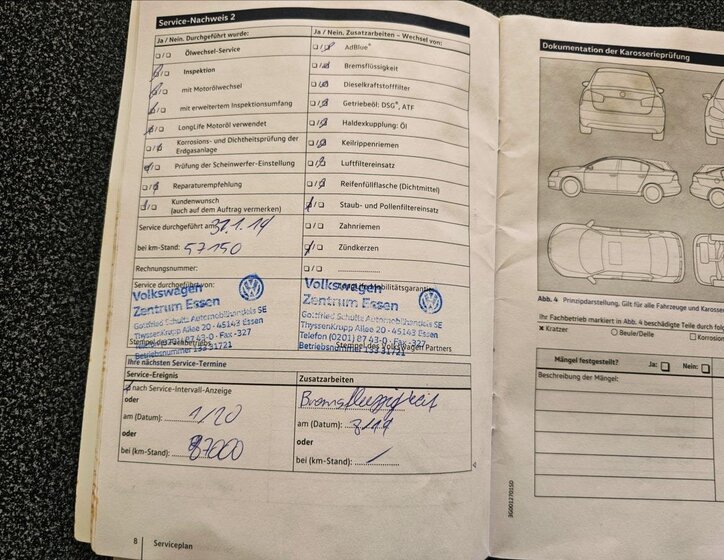 Service-Nachweis 2
Ja / Nein. Durchgeführt wurde:
Ölwechsel-Service
Inspektion
mit Motorölwechsel
mit erweitertem Inspektionsumfang
LongLife Motoröl verwendet
Korrosions- und Dichtheitsprüfung der
Erdgasanlage
Prüfung der Scheinwerfer-Einstellung
Reparaturempfehlung
Kundenwunsch
(auch auf dem Auftrag vermerken)
Service durchgeführt am:
bei km-Stand: 57150
Rechnungsnummer:
Service durchgeführt von:
Volkswagen
Zentrum Essen
Gottfried Schultz Automobilhandels SE
ThyssenKrupp Allee 20 - 45143 Essen
Betriebsnummer 133 31721
Ja / Nein. Zusatzarbeiten – Wechsel von:
AdBlue®
Bremsflüssigkeit
Dieselkraftstofffilter
Getriebeöl: DSG®, ATF
Haldexkupplung: Öl
Keilrippenriemen
Luftfiltereinsatz
Reifenfüllflasche (Dichtmittel)
Staub- und Pollenfiltereinsatz
Zahnriemen
Zündkerzen
Volkswagen
Zentrum Essen
Gottfried Schultz Automobilhandels SE
ThyssenKrupp Allee 20 - 45143 Essen
Telefon (0201) 8743-0 · Fax -327
Stempel des Volkswagen Partners
Betriebsnummer 133 31721
Ihre nächsten Service-Termine
Service-Ereignis
nach Service-Intervall-Anzeige
oder
am (Datum): 1/20
oder
bei (km-Stand): 87000
Zusatzarbeiten
Bremsflüssigkeit
am (Datum):
oder
bei (km-Stand): /
8 Serviceplan
Dokumentation der Karosserieprüfung
Abb. 4 Prinzipdarstellung. Gilt für alle Fahrzeuge und
Ihr Fachbetrieb markiert in Abb. 4 beschädigte Teile durch
× Kratzer
○ Beule/Delle
Mängel festgestellt? Ja: Nein:
Beschreibung der Mängel: